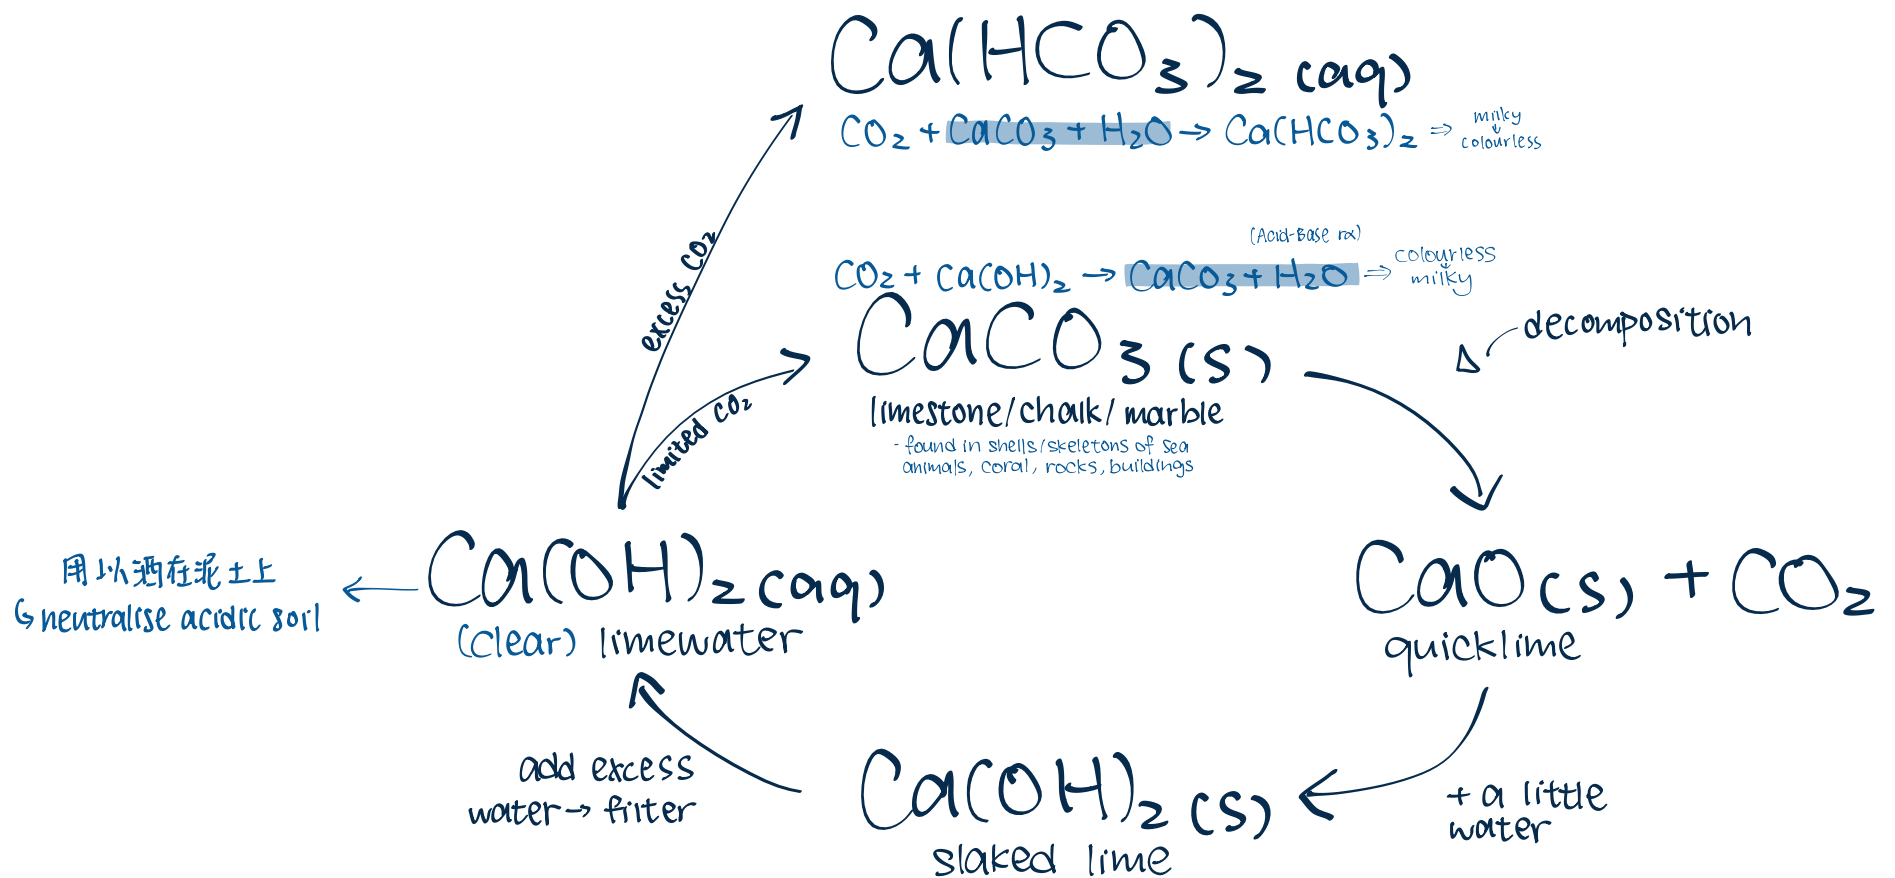 Ca(HCO₃)₂ (aq)
CO₂ + CaCO₃ + H₂O → Ca(HCO₃)₂ ⇒ milky
↓
colourless
excess CO₂
(Acid-Base rx)
CO₂ + Ca(OH)₂ → CaCO₃ + H₂O ⇒ colourless
↓
milky
CaCO₃ (s)
limestone/chalk/marble
- found in shells/skeletons of sea
animals, coral, rocks, buildings
limited CO₂
Δ
decomposition
用以洒在泥土上
↪ neutralise acidic soil
Ca(OH)₂ (aq)
(clear) limewater
CaO(s) + CO₂
quicklime
add excess
water → filter
Ca(OH)₂ (s)
slaked lime
+ a little
water